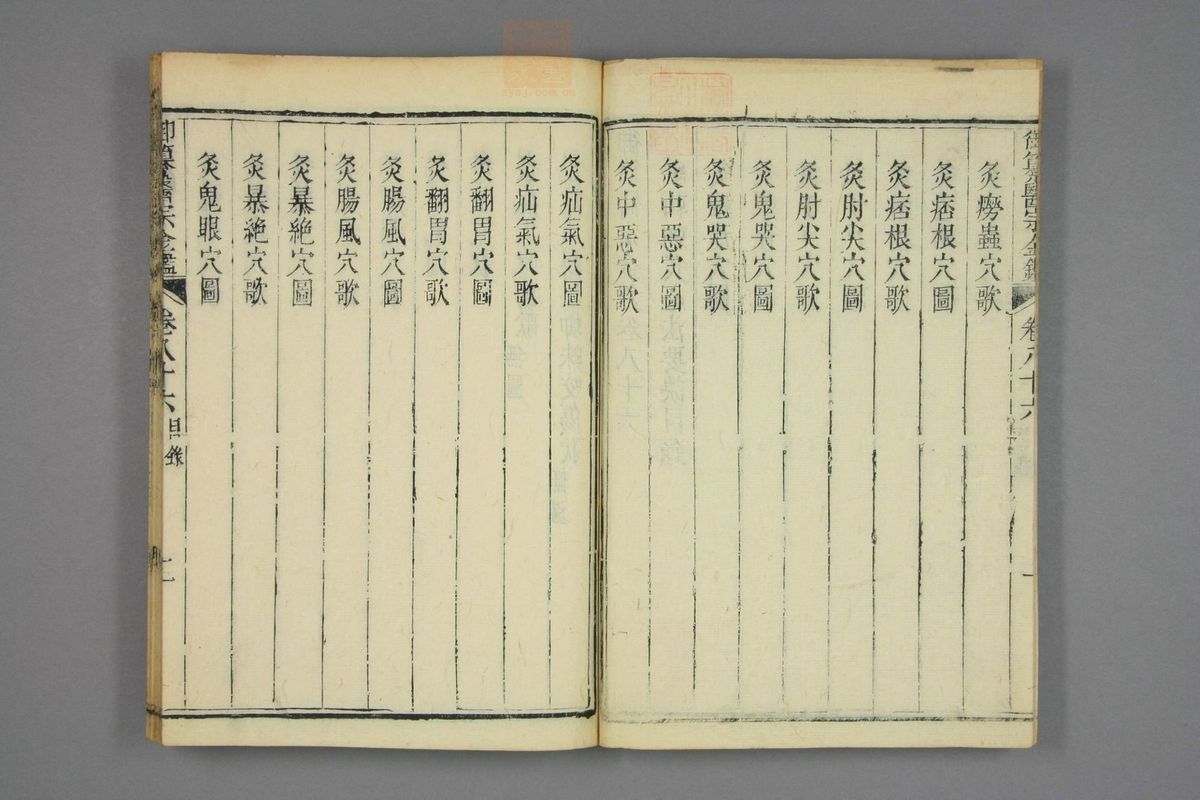 御纂醫宗金鑑 卷八十六 一
灸癆蟲穴歌
灸痞根穴圖
灸痞根穴歌
灸肘尖穴圖
灸肘尖穴歌
灸鬼哭穴圖
灸鬼哭穴歌
灸中惡穴圖
灸中惡穴歌
灸疝氣穴圖
灸疝氣穴歌
灸翻胃穴圖
灸翻胃穴歌
灸腸風穴圖
灸腸風穴歌
灸暴絶穴圖
灸暴絶穴歌
灸鬼眼穴圖
御纂醫宗金鑑 卷八十六 目錄